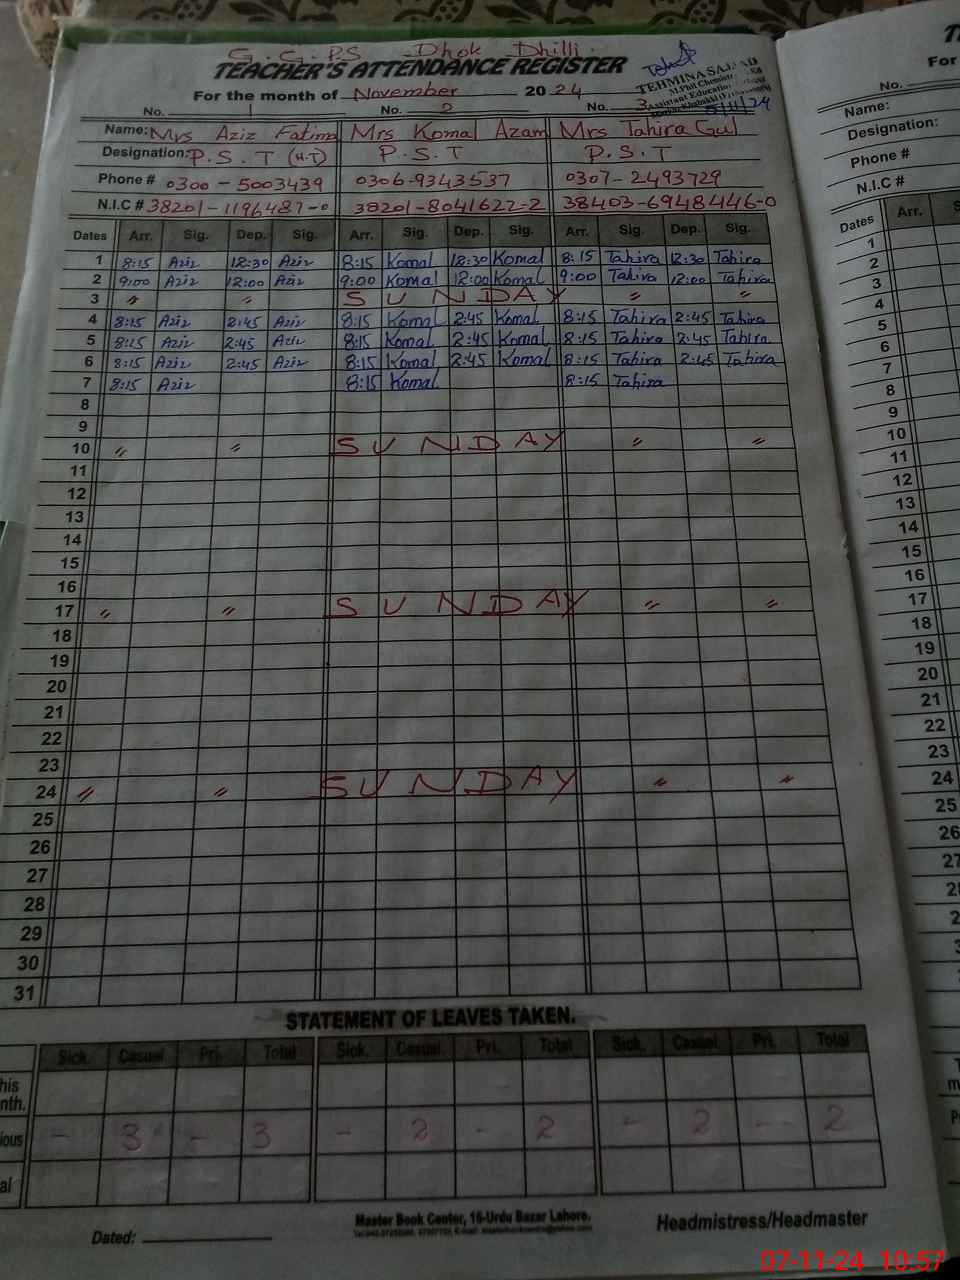 G.G.P.S. Dhok Dhilli.
TEACHER'S ATTENDANCE REGISTER
For the month of November 2024
TEHMINA SAJJAD
M.Phil Chemistry
Assistant Education
5/11/24
No. 1 No. 2 No. 3
Name: Mrs Aziz Fatima Mrs Komal Azam Mrs Tahira Gul
Designation: P.S.T (H.T) P.S.T P.S.T
Phone # 0300-5003439 0306-9343537 0307-2493729
N.I.C # 38201-1196487-0 38201-8041622-2 38403-6948446-0
Dates Arr. Sig. Dep. Sig. Arr. Sig. Dep. Sig. Arr. Sig. Dep. Sig.
1 8:15 Aziz 12:30 Aziz 8:15 Komal 12:30 Komal 8:15 Tahira 12:30 Tahira
2 9:00 Aziz 12:00 Aziz 9:00 Komal 12:00 Komal 9:00 Tahira 12:00 Tahira
3 〃 〃 SUNDAY 〃 〃
4 8:15 Aziz 2:45 Aziz 8:15 Komal 2:45 Komal 8:15 Tahira 2:45 Tahira
5 8:15 Aziz 2:45 Aziz 8:15 Komal 2:45 Komal 8:15 Tahira 2:45 Tahira
6 8:15 Aziz 2:45 Aziz 8:15 Komal 2:45 Komal 8:15 Tahira 2:45 Tahira
7 8:15 Aziz 8:15 Komal 8:15 Tahira
8
9
10 〃 〃 SUNDAY 〃 〃
11
12
13
14
15
16
17 〃 〃 SUNDAY 〃 〃
18
19
20
21
22
23
24 〃 〃 SUNDAY 〃 〃
25
26
27
28
29
30
31
STATEMENT OF LEAVES TAKEN.
Sick. Casual. Pri. Total Sick. Casual. Pri. Total Sick. Casual. Pri. Total
his
nth.
ious - 3 - 3 - 2 - 2 - 2 - 2
al
Master Book Center, 16-Urdu Bazar Lahore.
Dated: Headmistress/Headmaster
For
No.
Name:
Designation:
Phone #
N.I.C #
Dates Arr.
1
2
3
4
5
6
7
8
9
10
11
12
13
14
15
16
17
18
19
20
21
22
23
24
25
26
07-11-24 10:57